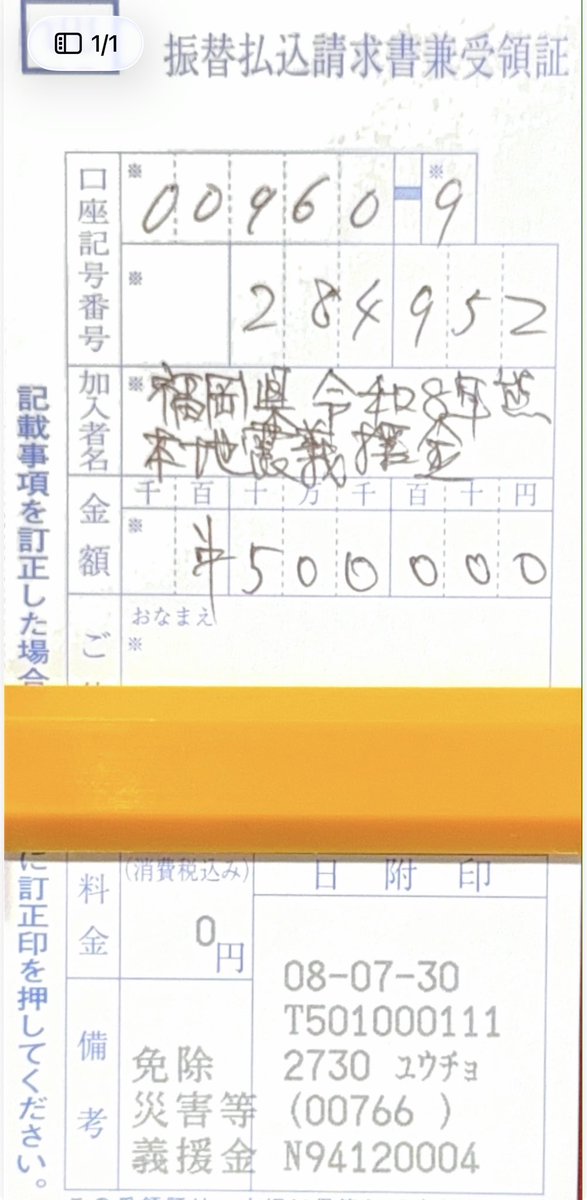 1/1
振替払込請求書兼受領証
口座記号番号
※ 00960-※9
※ 284952
加入者名
※ 福岡県令和8年熊
本地震義援金
金額
千百十万千百十円
※ ¥500000
おなまえ
※
ご
料金
(消費税込み)
0円
日附印
08-07-30
T501000111
2730 ユウチョ
(00766 )
N94120004
備考
免除
災害等
義援金
記載事項を訂正した場合
に訂正印を押してください。